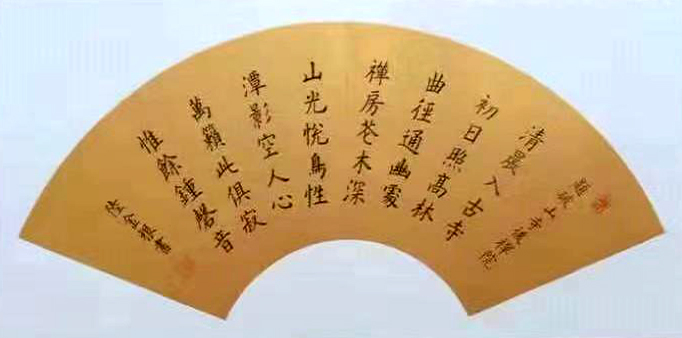 題破山寺後禪院
清晨入古寺
初日照高林
曲徑通幽處
禪房花木深
山光悅鳥性
潭影空人心
萬籟此俱寂
惟餘鍾磬音
金根書